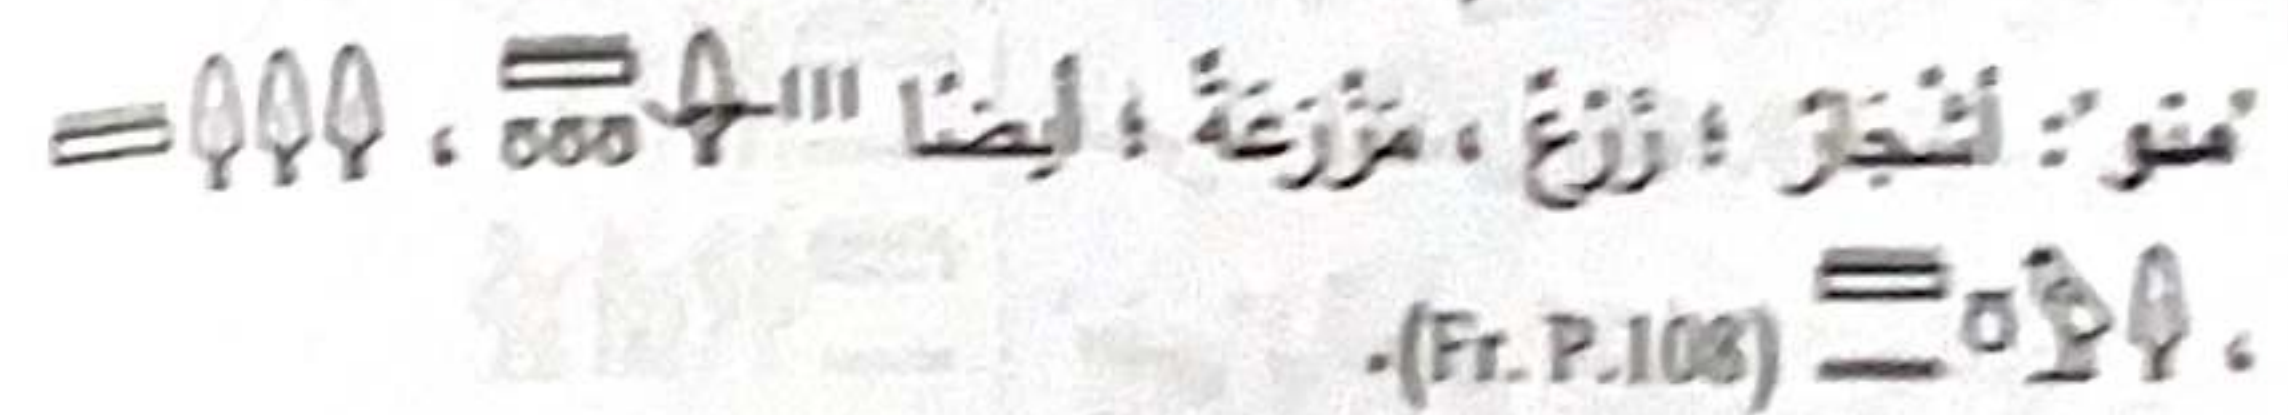 "منو": أشجارٌ ؛ زَرْعٌ ، مَزْرَعَةٌ ؛ أيضًا ،
، (Fr. P.108).